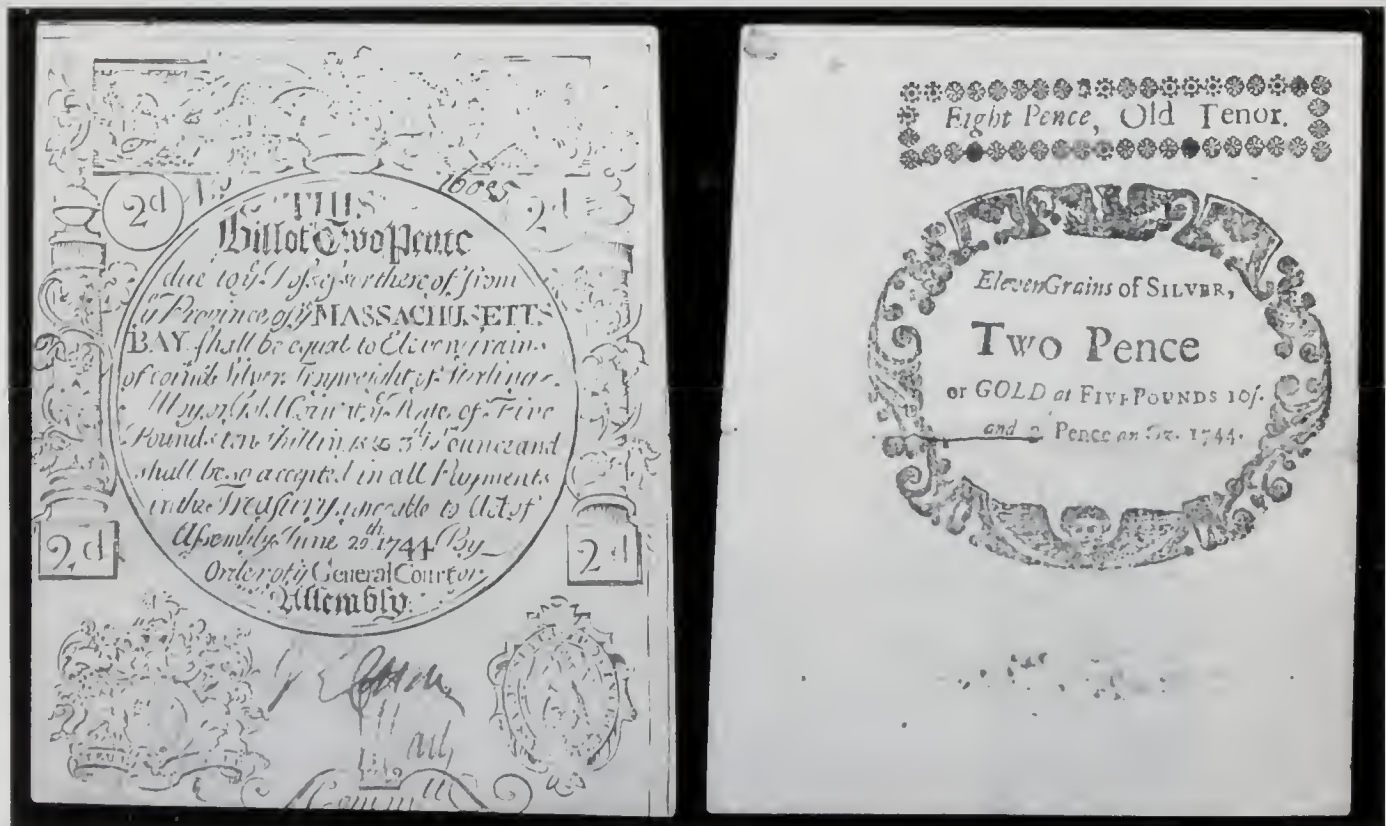 16085
2d
2d
THIS
Bill of Two Pence
due to yͤ Possessor thereof from
yͤ Province of yͤ MASSACHUSETTS
BAY shall be equal to Eleven Grains
of coin'd Silver Troyweight of Sterling
Alloy or Gold Coin at yͤ Rate of Five
Pounds ten Shillings & 3ᵈ Pounce and
shall be so accepted in all Payments
in the Treasury agreeable to Act of
Assembly June 20th 1744 By
Order of yͤ General Court or
Assembly.
2d
2d
Committ
Eight Pence, Old Tenor.
Eleven Grains of SILVER,
Two Pence
or GOLD at FIVE POUNDS 10ſ.
and Pence an Oz. 1744.